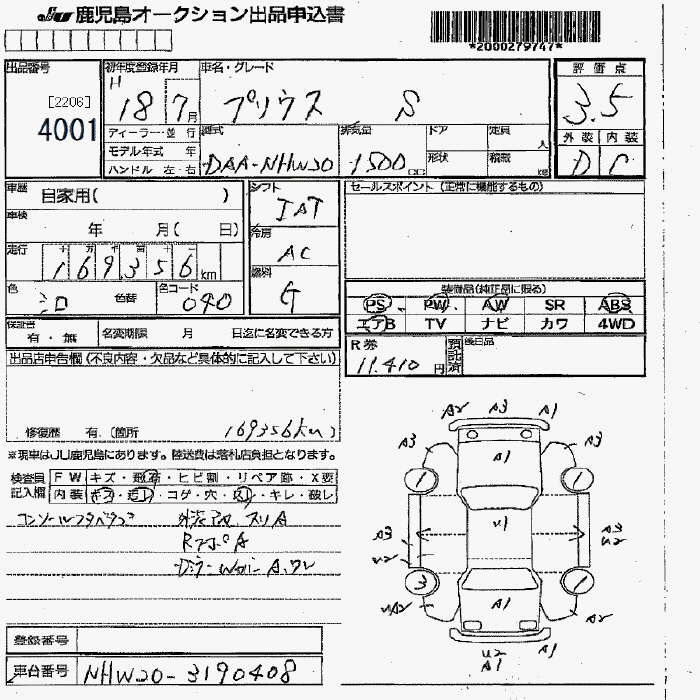 JU 鹿児島オークション出品申込書
*2000279747*
出品番号
[2206]
4001
初年度登録年月
H
18 7月
車名・グレード
プリウス S
評価点
3.5
外装 内装
D C
ディーラー・並行
モデル年式 年
ハンドル 左・右
型式
DAA-NHW20
排気量
1500 cc
ドア
形状
定員
人
積載
kg
車歴
自家用( )
車検
年 月( 日)
走行
十 万 千 百 十 一
169,356 km
色
色替
色コード
040
シフト
IAT
冷房
AC
燃料
G
セールスポイント (正常に機能するもの)
装備品(純正品に限る)
PS PW AW SR ABS
エアB TV ナビ カワ 4WD
保証書
有・無
名変期限 月 日迄に名変できる方
R券
11,410円
預託済
後日品
出品店申告欄(不良内容・欠品など具体的に記入して下さい)
修復歴 有. [箇所 169356km]
※現車はJU鹿児島にあります。陸送費は落札店負担となります。
検査員
記入欄
FW キズ・飛石・ヒビ割・リペア跡・X要
内装 キズ・汚レ・コゲ・穴・スレ・キレ・破レ
コンソールフタベタつき
外装 スリA
A2 A3 A1
A3 A3
A1
1 1
U1
A3 A3
U2 U2
3 1
A1
UA2 A2
U2 A1
A1
登録番号
車台番号
NHW20-3190408